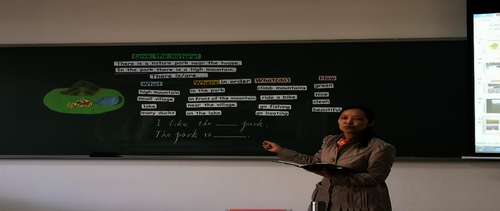 Love the nature!
There is a nature park near the house.
In the park there is a high mountain.
There is/are...
What Where in order What(do) How
high mountain in the park climb mountains green
small village in front of the mountain ride a bike nice
lake near the village go fishing clean
many ducks on the lake go boating beautiful
I like the ____ park.
The park is ____.